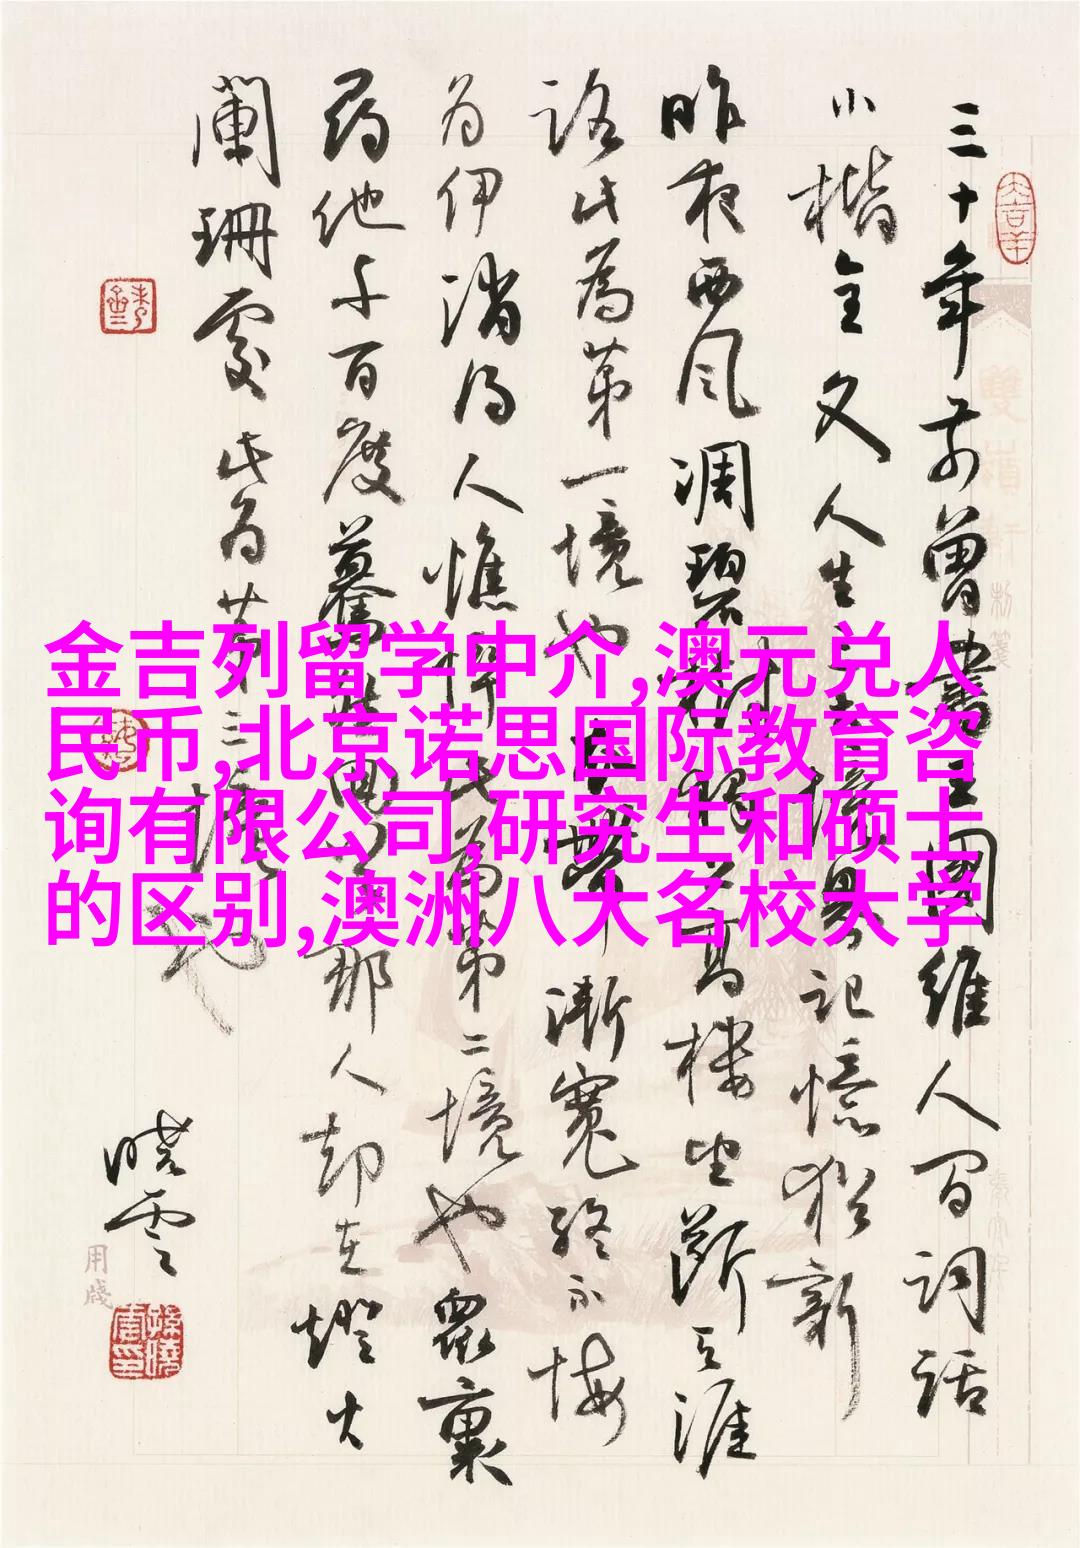 三十年前曾书王国维人间词话
小楷全文人生三境界记忆犹新
昨夜西风凋碧树独上高楼望断天涯
路此为第一境也衣带渐宽终不悔
为伊消得人憔悴此为第二境也众里
寻他千百度蓦然回首那人却在灯火
阑珊处此为第三境也
晓云
用笺
金吉列留学中介,澳元兑人
民币,北京诺思国际教育咨
询有限公司,研究生和硕士
的区别,澳洲八大名校大学